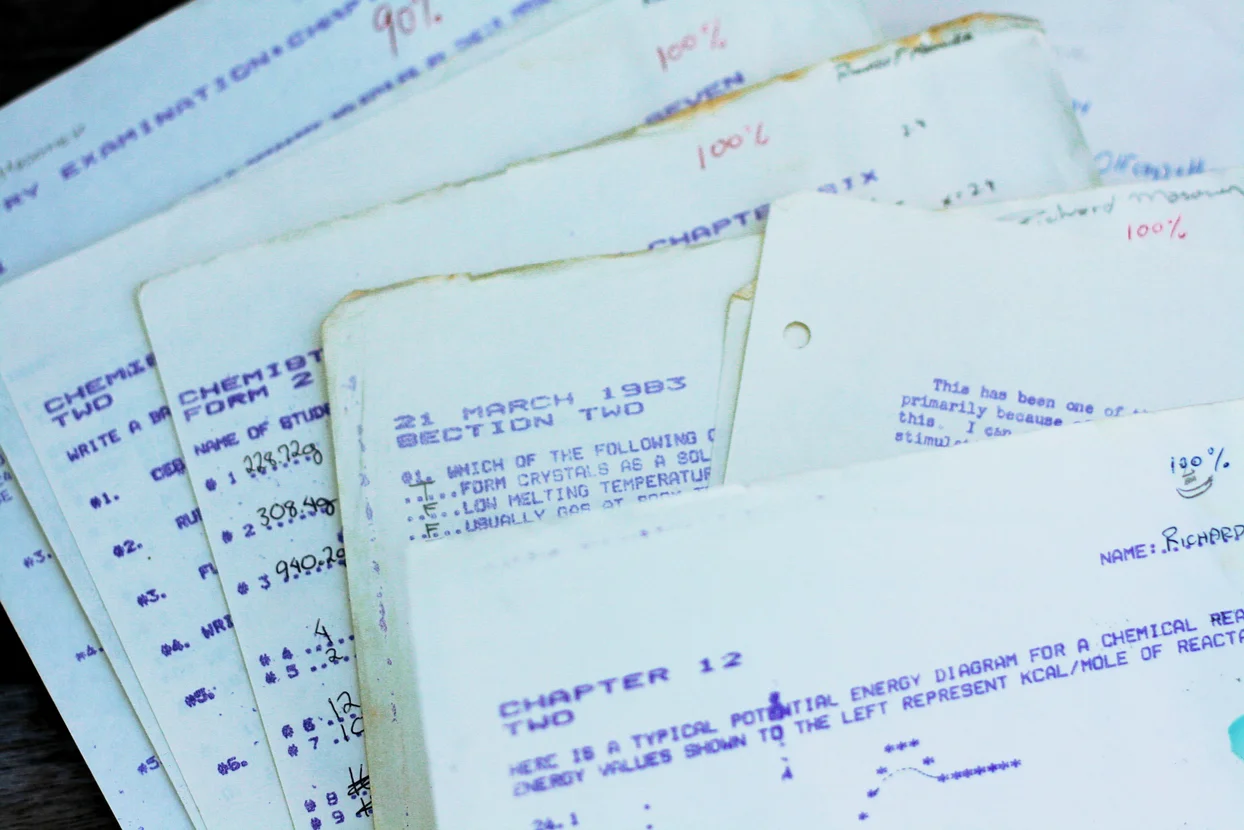 90%
RY EXAMINATION
100%
SEVEN
100%
CHAPTER SIX
Richard
100%
CHEMIS
TWO
WRITE A BA
#1.
#2.
#3.
#4. WRI
#5.
#6.
#3.
#4.
#5
CHEMIST
FORM 2
NAME OF STUDE
# 1 228.72g
# 2 308.4g
# 3 940.2g
# 4 4
# 5 2
# 6 12
# 7 10
# 8
# 9
21 MARCH 1983
SECTION TWO
#1. WHICH OF THE FOLLOWING
T FORM CRYSTALS AS A SOL
F LOW MELTING TEMPERATUR
F USUALLY GAS AT ROOM T
This has been one of
primarily because
this. I can
stimul
100%
NAME: RICHARD
CHAPTER 12
TWO
HERE IS A TYPICAL POTENTIAL ENERGY DIAGRAM FOR A CHEMICAL REA
ENERGY VALUES SHOWN TO THE LEFT REPRESENT KCAL/MOLE OF REACTA
24.1